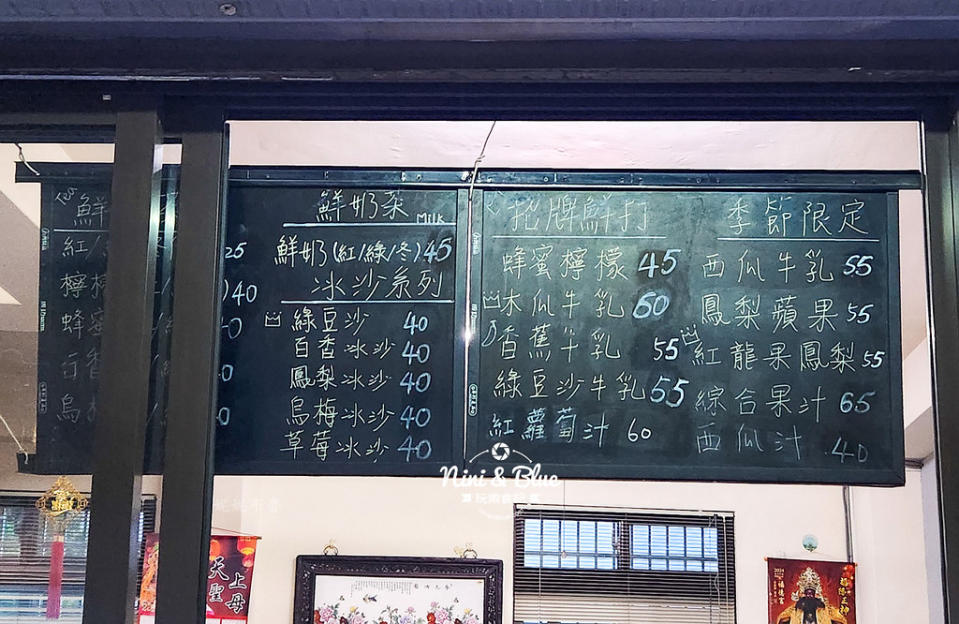 鮮
紅/ 25
檸檬 40
蜂蜜 40
百香
烏梅
鮮奶茶 Milk
鮮奶(紅/綠/冬)45
冰沙系列
綠豆沙 40
百香冰沙 40
鳳梨冰沙 40
烏梅冰沙 40
草莓冰沙 40
招牌鮮打
蜂蜜檸檬 45
木瓜牛乳 60
香蕉牛乳 55
綠豆沙牛乳 55
紅蘿蔔汁 60
季節限定
西瓜牛乳 55
鳳梨蘋果 55
紅龍果鳳梨 55
綜合果汁 65
西瓜汁 40
Nini & Blue
玩樂食記
天上聖母
2024
福德正神